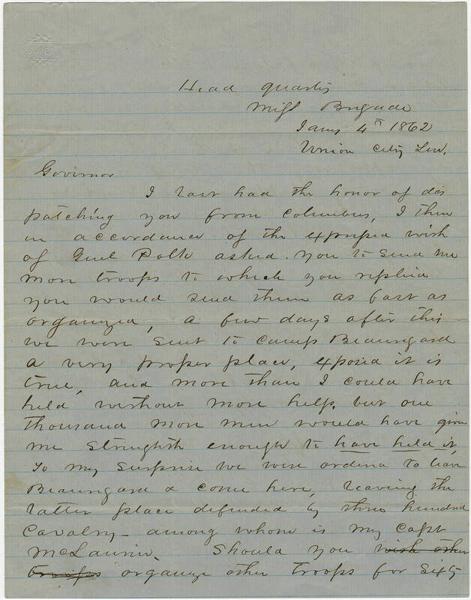 Head quartrs
Miss Brigade
Jany 4th 1862
Union City Ten.
Governor
I last had the honor of dis
patching you from Columbus, I then
in accordance of the expressed wish
of Genl Polk asked you to send me
more troops to which you replied
you would send them as fast as
organized, a few days after this
we were sent to Camp Beauregard
a very proper place, exposed it is
true, and more than I could have
held without more help, but one
thousand more men would have given
me strength enough to have held it,
To my surprise we were ordered to leave
Beauregard & come here, leaving the
latter place defended by three hundred
Cavalry - among whom is my Capt
McLaurin. Should you wish other
troops organize other troops for sixty